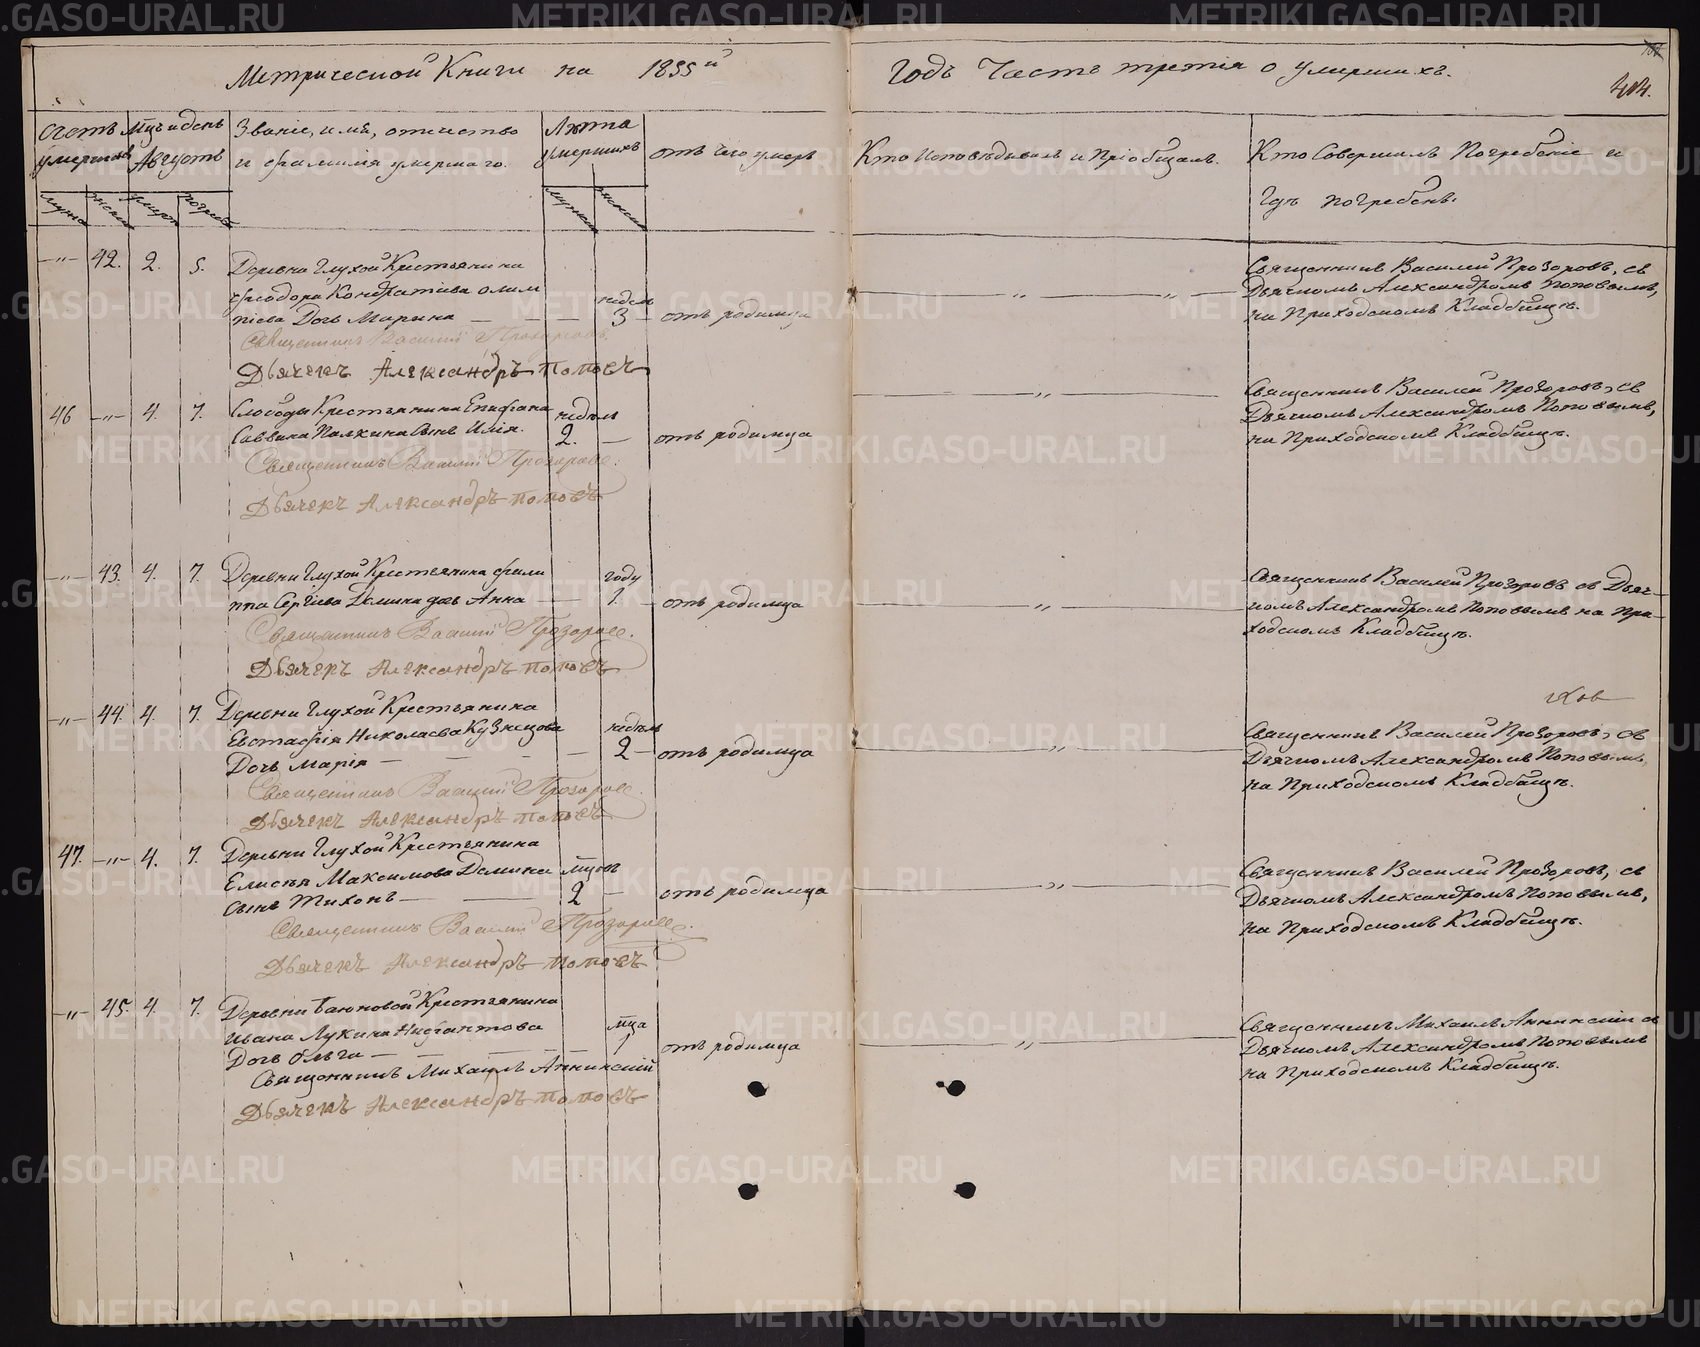 Метрической Книги на 1855й
Годъ Часть третія о умершихъ.
414.
Счетъ умершихъ
мцъ и день
Августъ
Званіе, имя, отчество
и фамилія умершаго.
Лѣта
умершихъ
отъ чего умеръ
Кто Исповѣдывалъ и Пріобщалъ.
Кто Совершалъ Погребеніе и
гдѣ погребенъ.
42. 2. 5. Деревни Глухой Крестьянина
Феодора Кондратіева Олим
піева Дочь Марина
недель
3
отъ родимца
Священникъ Василій Прозоровъ, съ
Дьячкомъ Александромъ Поповымъ,
на Приходскомъ Кладбищѣ.
Священникъ Василій Прозоровъ.
Дьячекъ Александръ Поповъ
46 4. 7. Слободы Крестьянина Епифана
Саввина Палкина Сынъ Илія.
недель
2.
отъ родимца
Священникъ Василій Прозоровъ, съ
Дьячкомъ Александромъ Поповымъ,
на Приходскомъ Кладбищѣ.
Священникъ Василій Прозоровъ.
Дьячекъ Александръ Поповъ
43. 4. 7. Деревни Глухой Крестьянина Фили
ппа Сергіева Демина дочь Анна
году
1.
отъ родимца
Священникъ Василій Прозоровъ съ Дьяч-
комъ Александромъ Поповымъ на При-
ходскомъ Кладбищѣ.
Священникъ Василій Прозоровъ.
Дьячекъ Александръ Поповъ
44. 4. 7. Деревни Глухой Крестьянина
Евстафія Николаева Кузнецова
Дочь Марія
недель
2
отъ родимца
Священникъ Василій Прозоровъ, съ
Дьячкомъ Александромъ Поповымъ
на Приходскомъ Кладбищѣ.
Священникъ Василій Прозоровъ.
Дьячекъ Александръ Поповъ
47. 4. 7. Деревни Глухой Крестьянина
Елисѣя Максимова Демина
Сынъ Тихонъ
мцовъ
2
отъ родимца
Священникъ Василій Прозоровъ, съ
Дьячкомъ Александромъ Поповымъ,
на Приходскомъ Кладбищѣ.
Священникъ Василій Прозоровъ.
Дьячекъ Александръ Поповъ
45. 4. 7. Деревни Баюновой Крестьянина
Ивана Лукина
Дочь Ольга
мца
1
отъ родимца
Священникъ Михаилъ Аннинскій съ
Дьячкомъ Александромъ Поповымъ
на Приходскомъ Кладбищѣ.
Священникъ Михаилъ Аннинскій
Дьячекъ Александръ Поповъ
METRIKI.GASO-URAL.RU